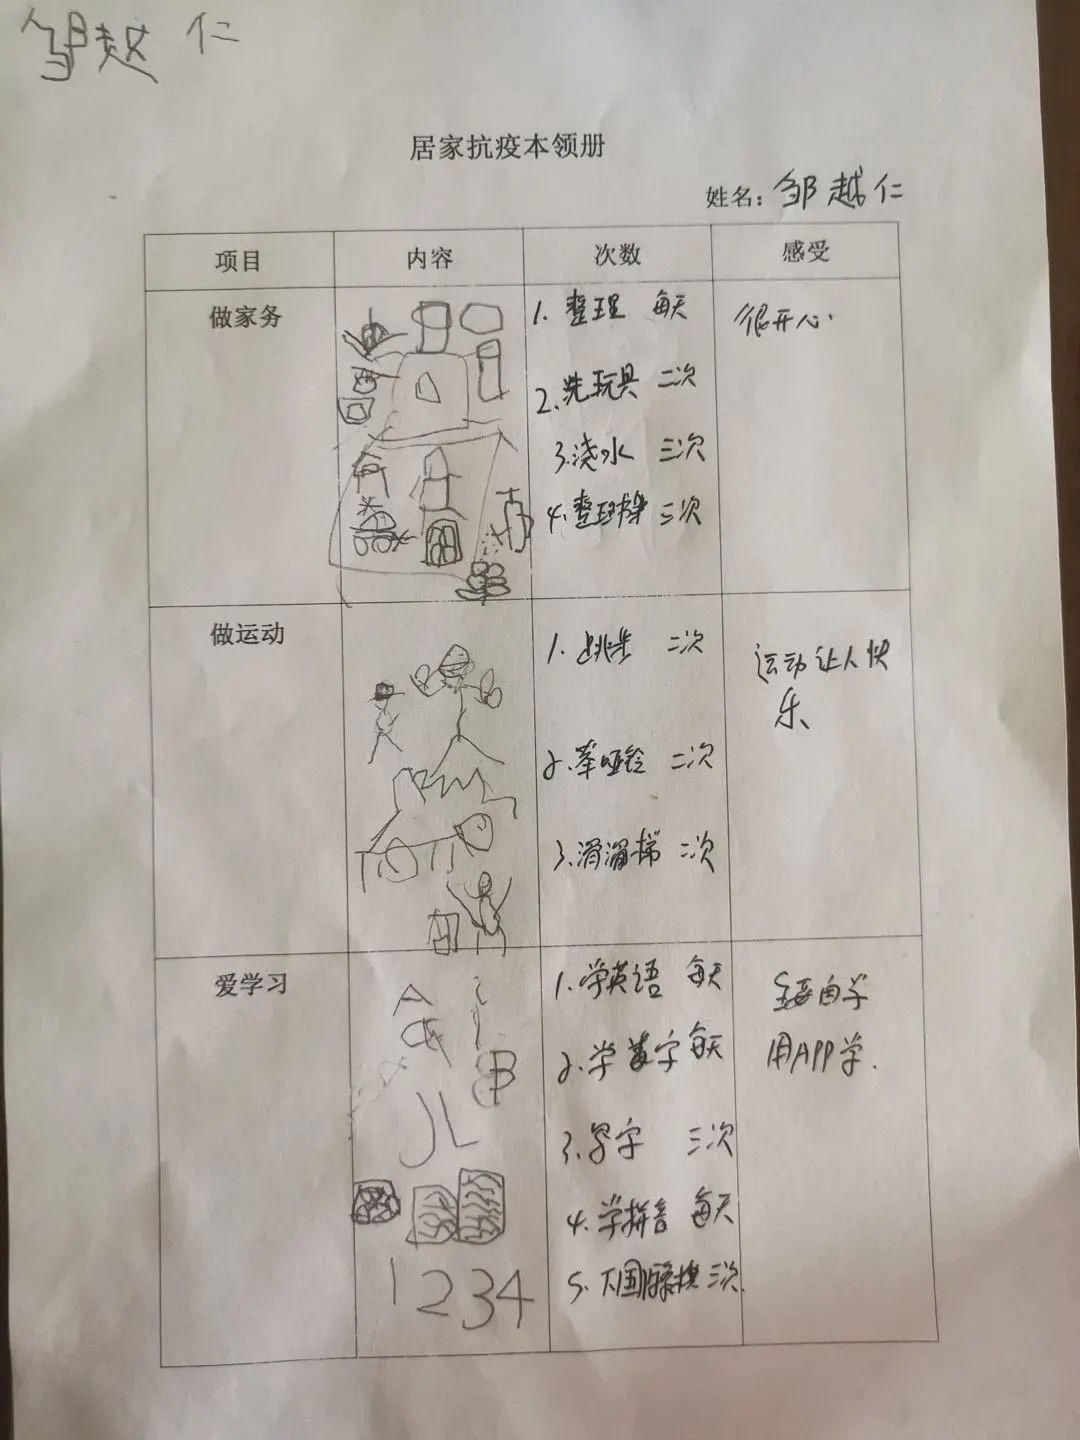 邹越仁
居家抗疫本领册
姓名：邹越仁
项目 内容 次数 感受
做家务
1. 整理 每天
很开心.
2. 洗玩具 二次
3. 浇水 三次
4. 整理 三次
做运动
1. 跳步 二次
运动让人快
乐、
2. 举哑铃 二次
3. 滑滑梯 二次
爱学习
1. 学英语 每天
自学
2. 学数字 每天
用APP学.
3. 写字 三次
4. 学拼音 每天
5. 下国际象棋 三次
A
B
1234